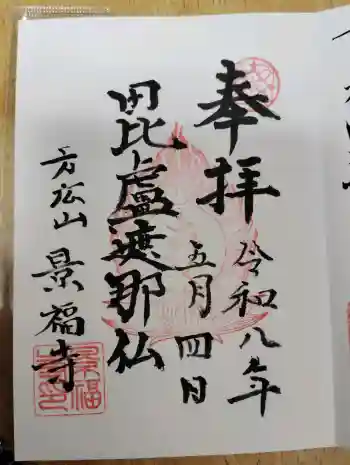 奉拝
令和八年
五月四日
毘盧遮那仏
万松山 景福寺
景福